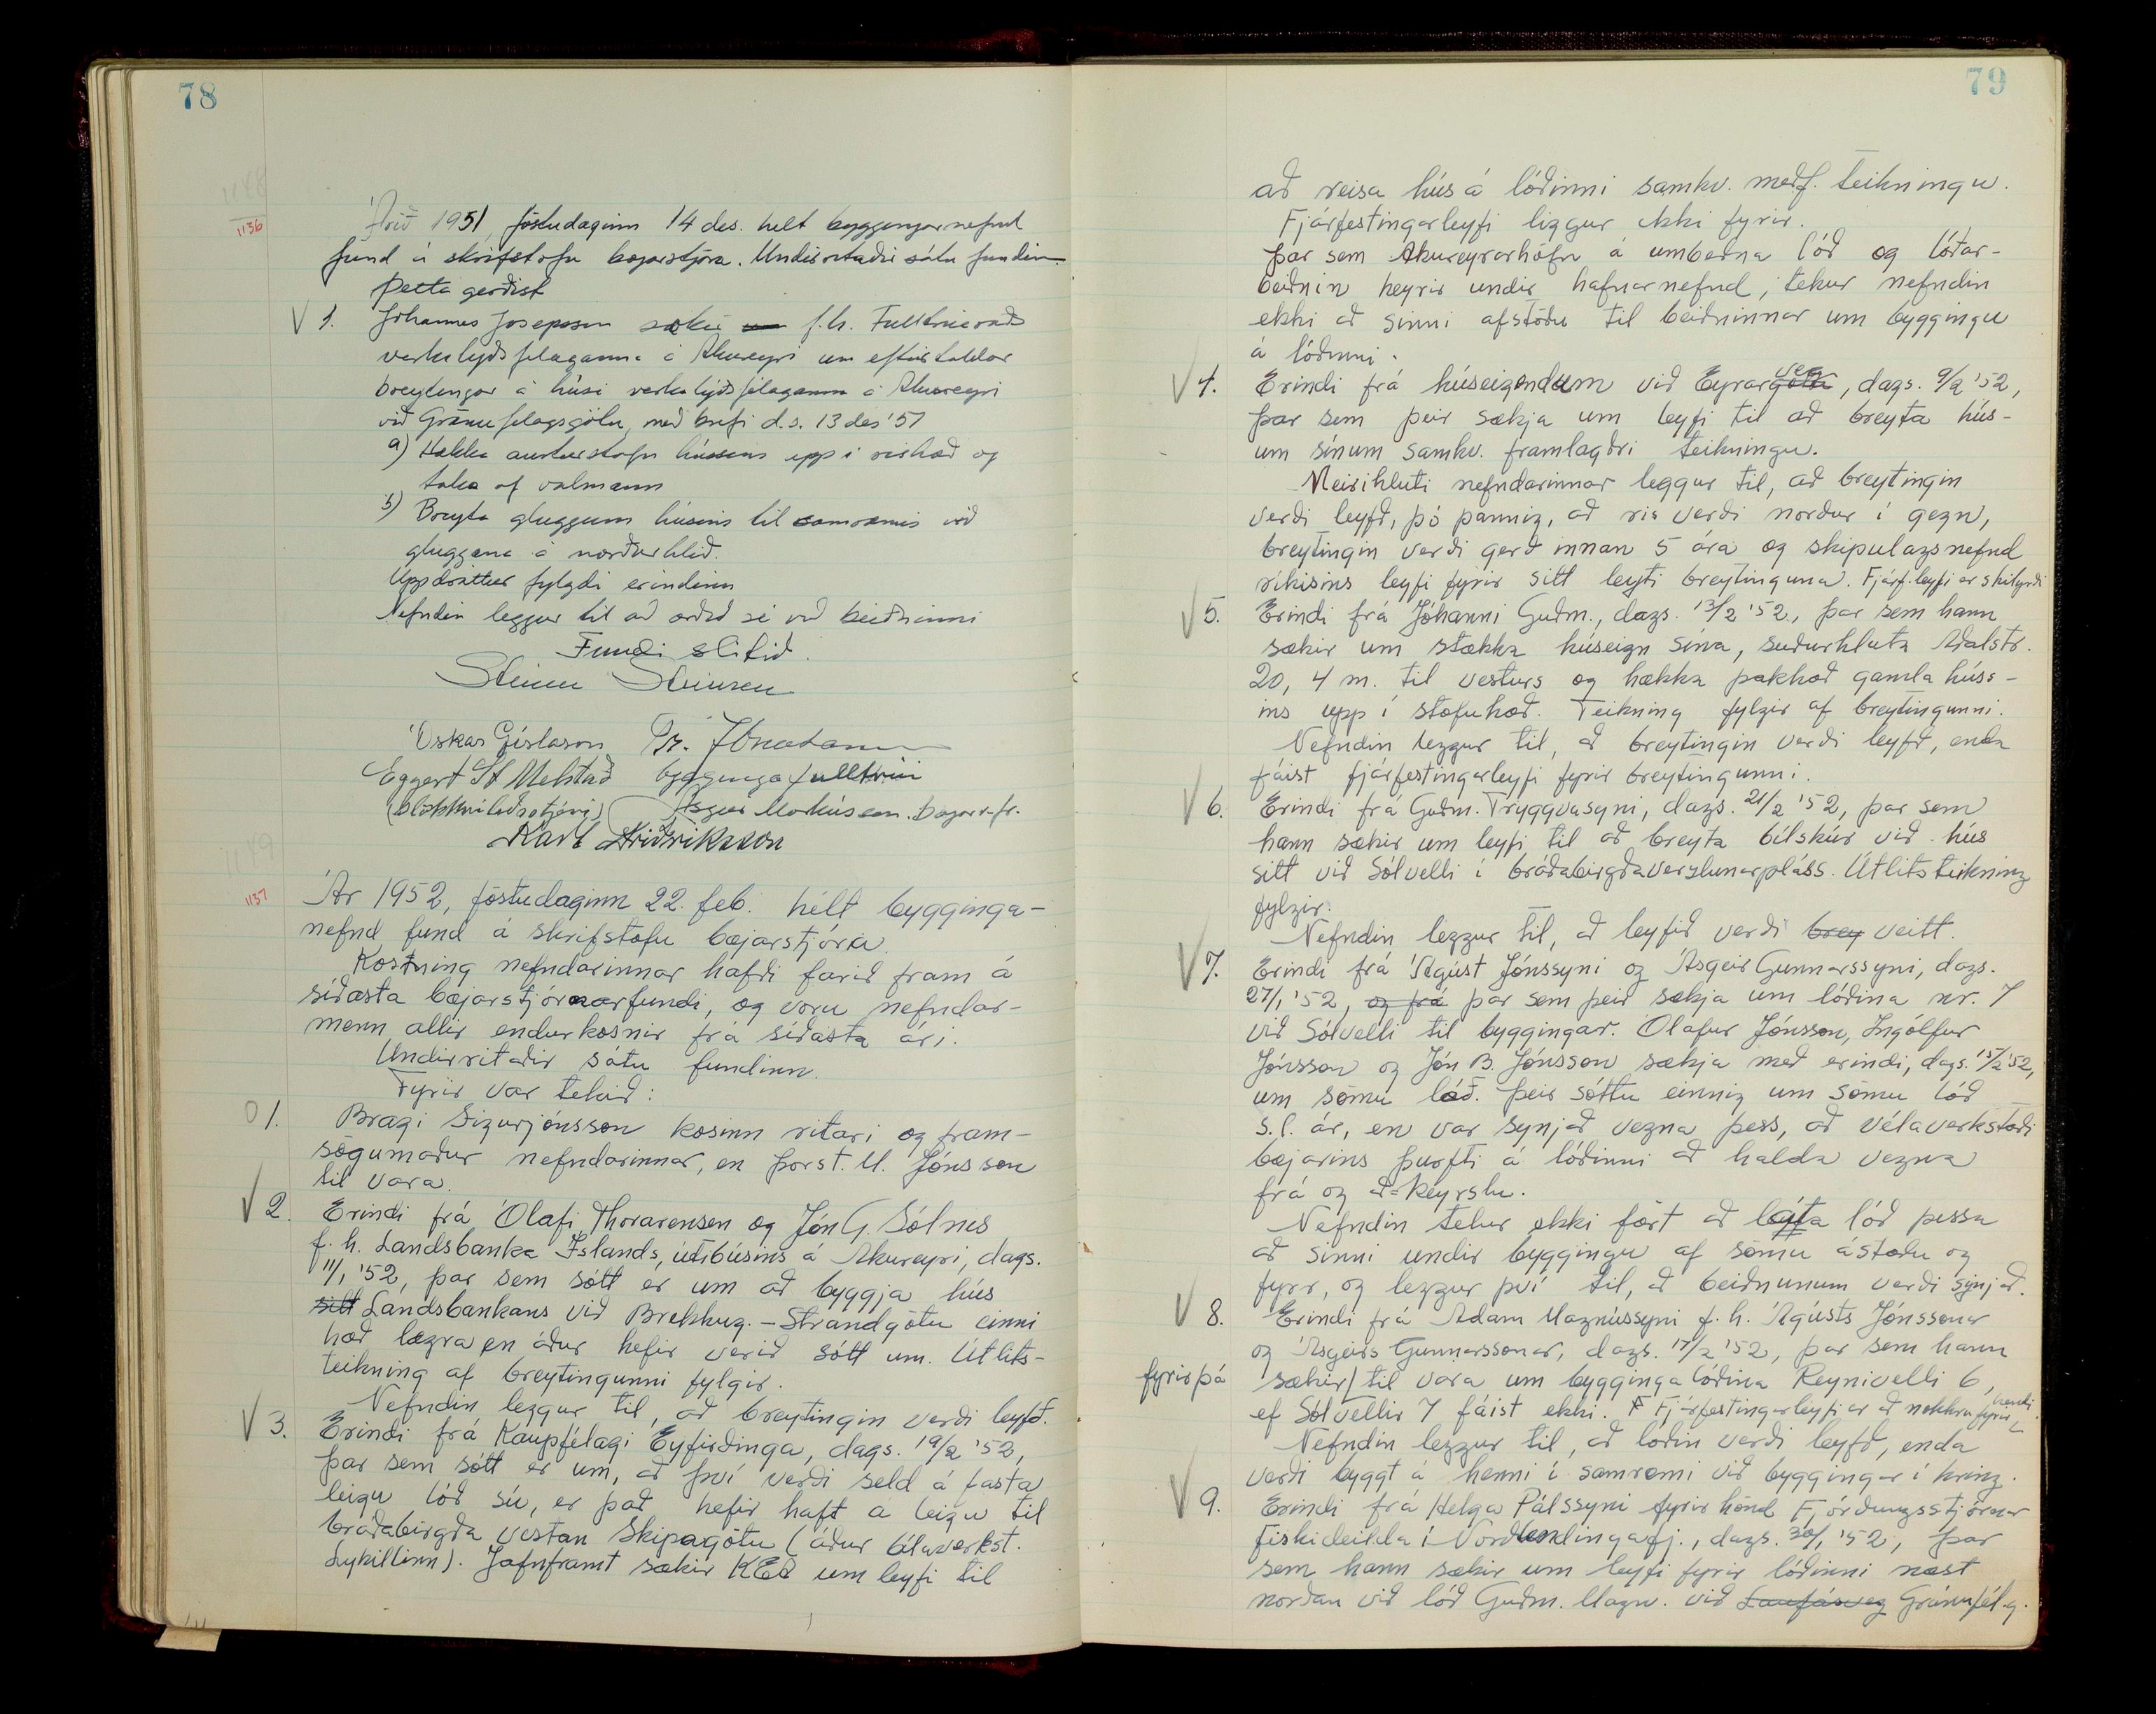 78
1148
1136
Árið 1951, föstudaginn 14 des. helt byggingarnefnd
fund á skrifstofu bæjarstjóra. Undirritaðir sátu fundinn.
Þetta gerðist
V 1. Jóhannes Josepsson sækir um f.h. Fulltrúaráðs
verkalýðsfelaganna á Akureyri um eftirtaldar
breytingar á húsi verkalýðsfélaganna á Akureyri
við Gránufelagsgötu, með brefi d.s. 13 des '51
a) Hækka austurstafn hússins upp í rishæð og
taka af valmann
b) Breyta gluggum húsins til samræmis við
gluggana á norðurhlið.
Uppdráttur fylgdi erindinu
Nefndin leggur til að orðið sé við beiðninni
Fundi slitið.
Steinn Steinsen
Óskar Gíslason
Eggert St Melstað byggingafulltrúi
(slökkviliðsstjóri) Ásgeir Markússon. bæjarv.fr.
Karl Friðriksson
1149
1137
Ár 1952, föstudaginn 22. feb. hélt bygginga-
nefnd fund á skrifstofu bæjarstjóra.
Kosning nefndarinnar hafði farið fram á
síðasta bæjarstjórnarfundi, og voru nefndar-
menn allir endurkosnir frá síðasta ári.
Undirritaðir sátu fundinn.
Fyrir var tekið:
O 1. Bragi Sigurjónsson kosinn ritari og fram-
sögumaður nefndarinnar, en Þorst. M. Jónsson
til vara.
V 2. Erindi frá Ólafi Thorarensen og Jón G. Sólnes
f.h. Landsbanka Íslands, útibúsins á Akureyri, dags.
11/1 '52, þar sem sótt er um að byggja hús
sitt Landsbankans við Brekkug. - Strandgötu einni
hæð lægra en áður hefir verið sótt um. Útlits-
teikning af breytingunni fylgir.
Nefndin leggur til, að breytingin verði leyfð.
V 3. Erindi frá Kaupfélagi Eyfirðinga, dags. 19/2 '52,
þar sem sótt er um, að því verði seld á fasta
leigu lóð sú, er það hefir haft á leigu til
bráðabirgða vestan Skipagötu (áður bílaverkst.
Lykillinn). Jafnframt sækir KEA um leyfi til
79
að reisa hús á lóðinni samkv. meðf. teikningu.
Fjárfestingarleyfi liggur ekki fyrir.
Þar sem Akureyrarhöfn á umbeðna lóð og lóðar-
beiðnin heyrir undir hafnarnefnd, tekur nefndin
ekki að sinni afstöðu til beiðninnar um byggingu
á lóðinni.
V 4. Erindi frá húseigendum við Eyrargötu veg, dags. 9/2 '52,
þar sem þeir sækja um leyfi til að breyta hús-
um sínum samkv. framlagðri teikningu.
Meirihluti nefndarinnar leggur til, að breytingin
verði leyfð, þó þannig, að ris verði norður í gegn,
breytingin verði gerð innan 5 ára og skipulagsnefnd
ríkisins leyfi fyrir sitt leyti breytinguna. Fjárf.leyfi er skilyrði
V 5. Erindi frá Jóhanni Guðm., dags. 13/2 '52., þar sem hann
sækir um stækka húseign sína, suðurhluta Aðalstr.
20, 4 m. til vesturs og hækka þakhæð gamla húss-
ins upp í stofuhæð. Teikning fylgir af breytingunni.
Nefndin leggur til, að breytingin verði leyfð, enda
fáist fjárfestingarleyfi fyrir breytingunni.
V 6. Erindi frá Guðm. Tryggvasyni, dags. 21/2 '52, þar sem
hann sækir um leyfi til að breyta bílskúr við hús
sitt við Sólvelli í bráðabirgðaverzlunarpláss. Útlitsteikning
fylgir.
Nefndin leggur til, að leyfið verði brey veitt.
V 7. Erindi frá Ágúst Jónssyni og Ásgeir Gunnarssyni, dags.
27/1 '52, og frá þar sem þeir sækja um lóðina nr. 7
við Sólvelli til byggingar. Ólafur Jónsson, Ingólfur
Jónsson og Jón B. Jónsson sækja með erindi, dags. 15/2 '52,
um sömu lóð. Þeir sóttu einnig um sömu lóð
s.l. ár, en var synjað vegna þess, að vélaverkstæði
bæjarins þurfti á lóðinni að halda vegna
frá og að=keyrslu.
Nefndin telur ekki fært að láta lóð þessa
að sinni undir byggingu af sömu ástæðu og
fyrr, og leggur því til, að beiðnunum verði synjað.
V 8. Erindi frá Adam Magnússyni f.h. Ágústs Jónssonar
og Ásgeirs Gunnarssonar, dags. 17/2 '52, þar sem hann
fyrir þá sækir til vara um bygginga lóðina Reynivelli 6,
ef Sólvellir 7 fáist ekki. F Fjárfestingarleyfi er að nokkru fyrir hendi.
Nefndin leggur til, að lóðin verði leyfð, enda
verði byggt á henni í samræmi við byggingar í kring.
V 9. Erindi frá Helga Pálssyni fyrir hönd Fjórðungsstjórnar
fiskideilda í Norðlendingafj., dags. 30/1 '52, þar
sem hann sækir um leyfi fyrir lóðinni næst
norðan við lóð Guðm. Magn. við Laufásveg Gránufél.g.